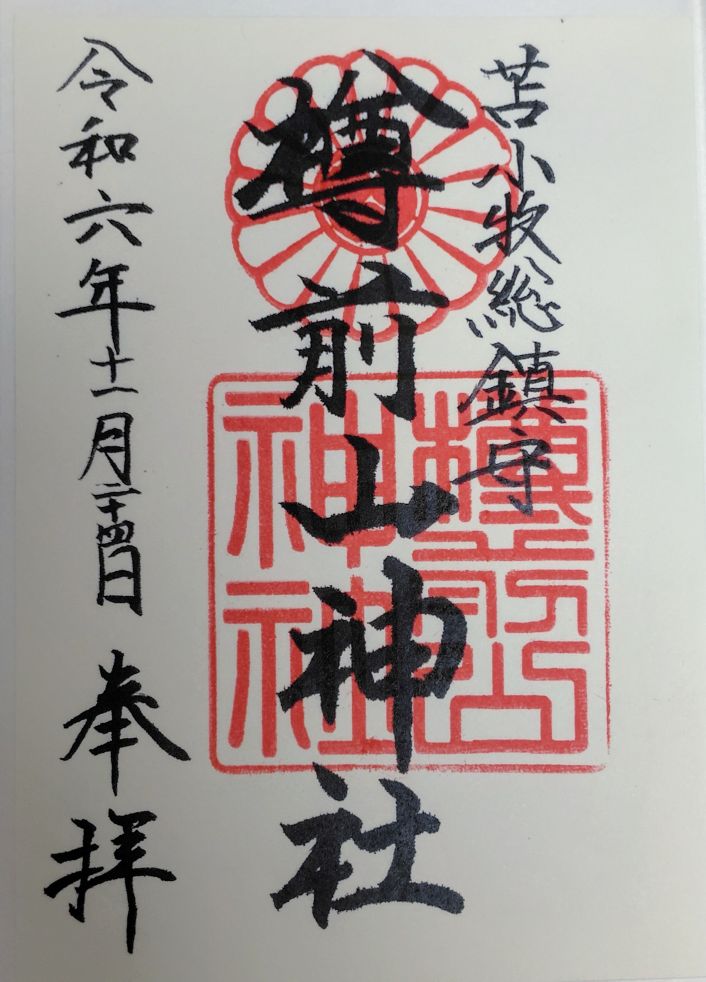 苫小牧総鎮守
樽前山神社
令和六年十一月二十四日 奉拝
樽前山神社